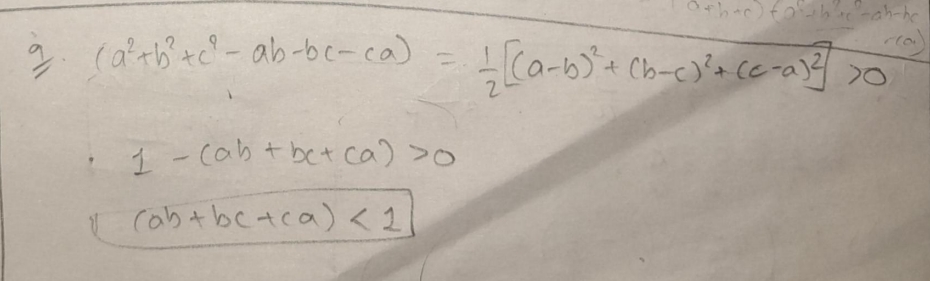 a+b+c) (a²+b²+c²-ab-bc
-ca)
9. (a²+b²+c² - ab - bc - ca) = 1/2[(a-b)² + (b-c)² + (c-a)²] >0
1 - (ab + bc + ca) >0
(ab + bc + ca) < 1